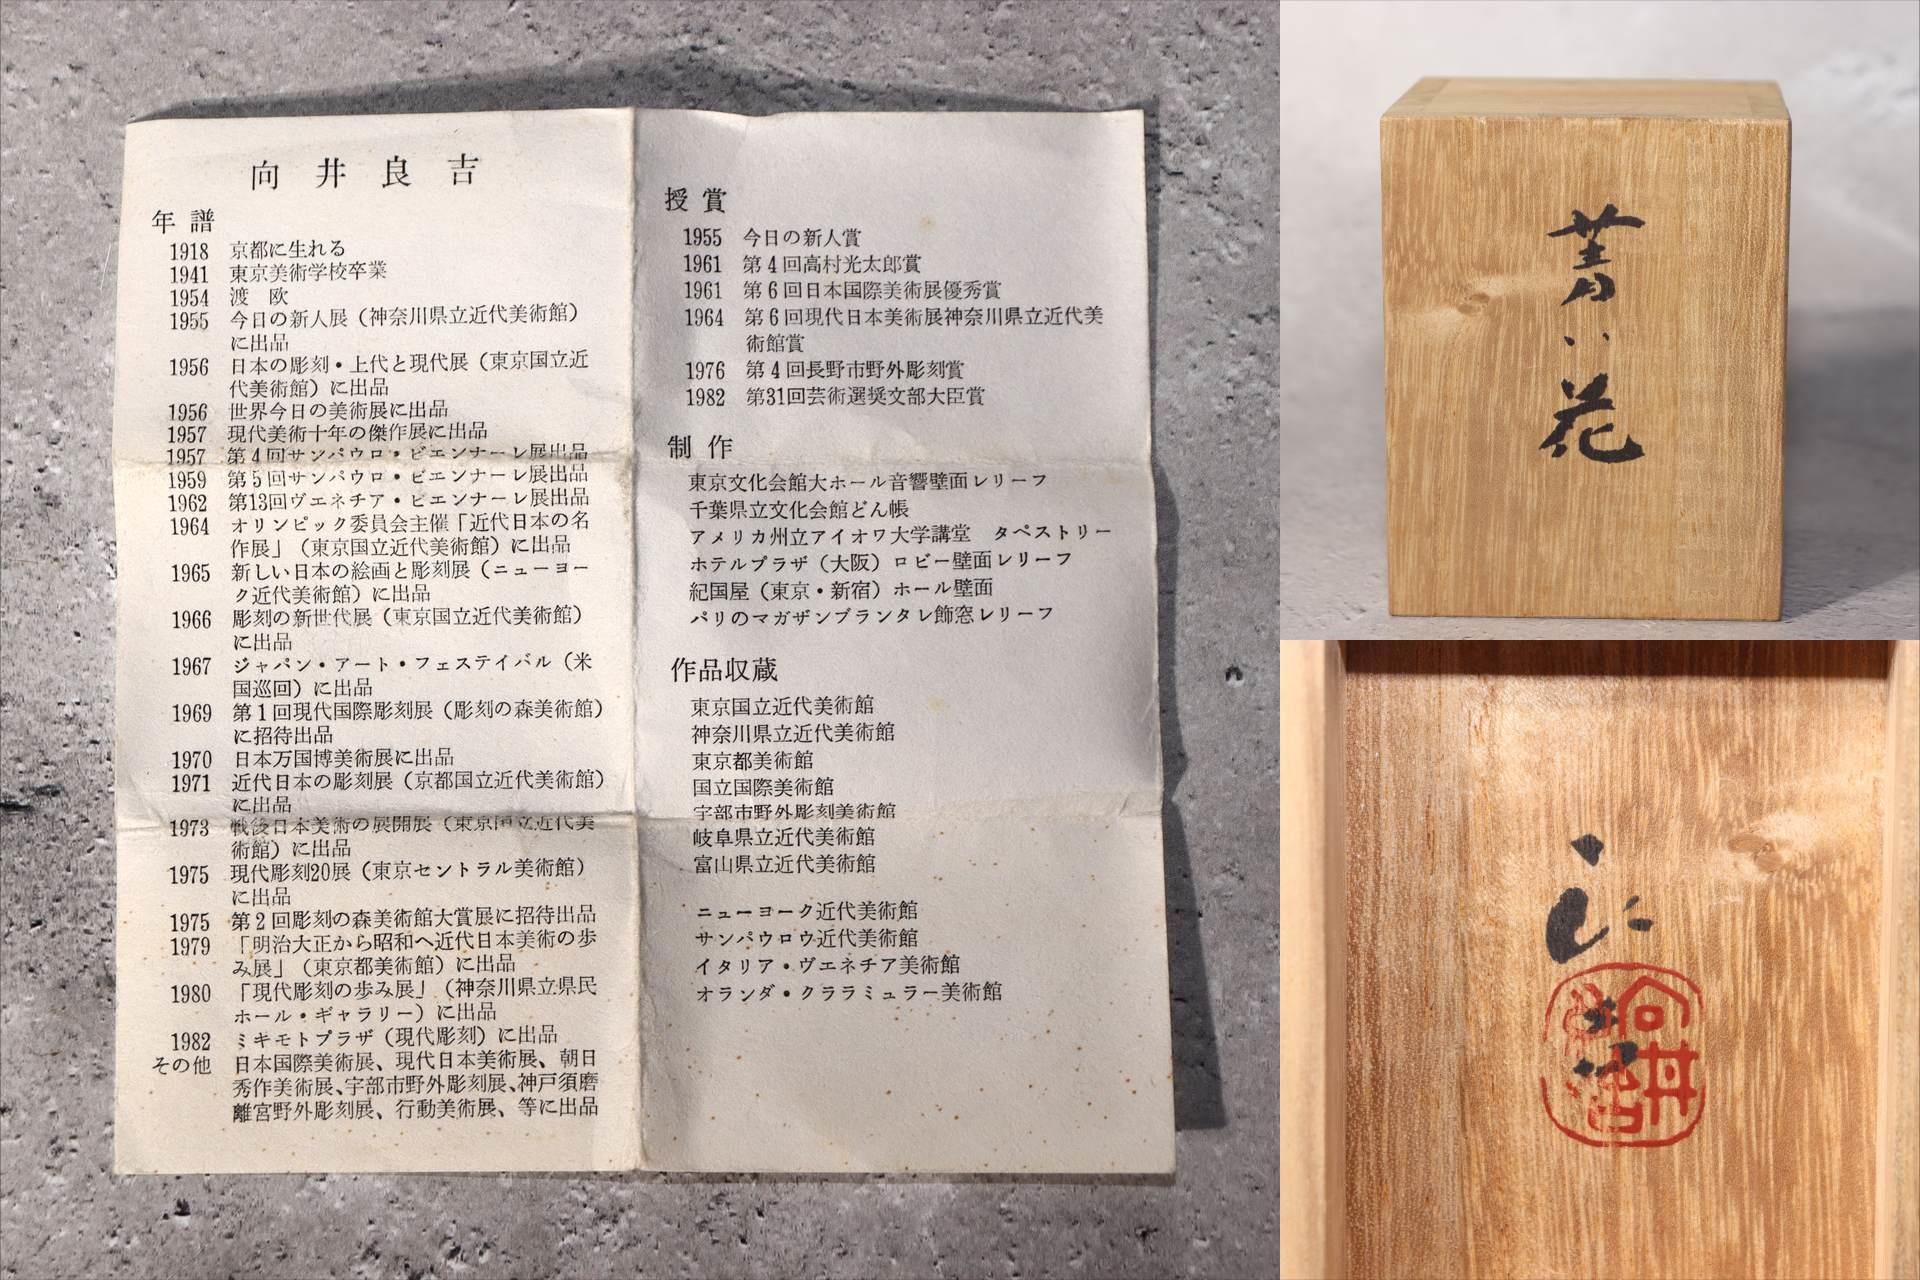 向井良吉
年譜
1918 京都に生れる
1941 東京美術学校卒業
1954 渡　欧
1955 今日の新人展（神奈川県立近代美術館）
に出品
1956 日本の彫刻・上代と現代展（東京国立近
代美術館）に出品
1956 世界今日の美術展に出品
1957 現代美術十年の傑作展に出品
1957 第4回サンパウロ・ビエンナーレ展出品
1959 第5回サンパウロ・ビエンナーレ展出品
1962 第13回ヴエネチア・ビエンナーレ展出品
1964 オリンピック委員会主催「近代日本の名
作展」（東京国立近代美術館）に出品
1965 新しい日本の絵画と彫刻展（ニューヨー
ク近代美術館）に出品
1966 彫刻の新世代展（東京国立近代美術館）
に出品
1967 ジャパン・アート・フェステイバル（米
国巡回）に出品
1969 第1回現代国際彫刻展（彫刻の森美術館）
に招待出品
1970 日本万国博美術展に出品
1971 近代日本の彫刻展（京都国立近代美術館）
に出品
1973 戦後日本美術の展開展（東京国立近代美
術館）に出品
1975 現代彫刻20展（東京セントラル美術館）
に出品
1975 第2回彫刻の森美術館大賞展に招待出品
1979 「明治大正から昭和へ近代日本美術の歩
み展」（東京都美術館）に出品
1980 「現代彫刻の歩み展」（神奈川県立県民
ホール・ギャラリー）に出品
1982 ミキモトプラザ（現代彫刻）に出品
その他 日本国際美術展、現代日本美術展、朝日
秀作美術展、宇部市野外彫刻展、神戸須磨
離宮野外彫刻展、行動美術展、等に出品
授賞
1955 今日の新人賞
1961 第4回高村光太郎賞
1961 第6回日本国際美術展優秀賞
1964 第6回現代日本美術展神奈川県立近代美
術館賞
1976 第4回長野市野外彫刻賞
1982 第31回芸術選奨文部大臣賞
制作
東京文化会館大ホール音響壁面レリーフ
千葉県立文化会館どん帳
アメリカ州立アイオワ大学講堂　タペストリー
ホテルプラザ（大阪）ロビー壁面レリーフ
紀国屋（東京・新宿）ホール壁面
パリのマガザンプランタレ飾窓レリーフ
作品収蔵
東京国立近代美術館
神奈川県立近代美術館
東京都美術館
国立国際美術館
宇部市野外彫刻美術館
岐阜県立近代美術館
富山県立近代美術館
ニューヨーク近代美術館
サンパウロウ近代美術館
イタリア・ヴエネチア美術館
オランダ・クララミュラー美術館
青い花
向井